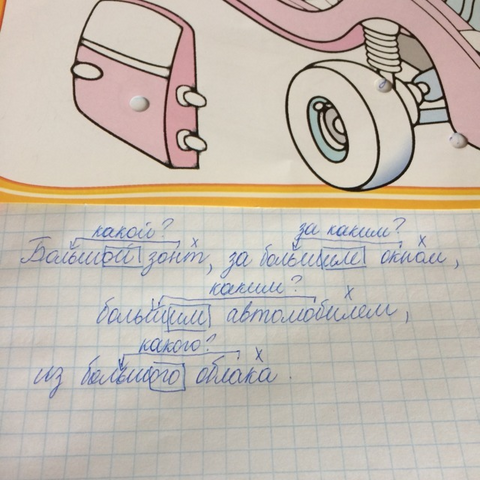 какой? за каким?
х х
Большой зонт, за большим окном,
каким?
х
большим автомобилем,
какого?
х
из большого облака.